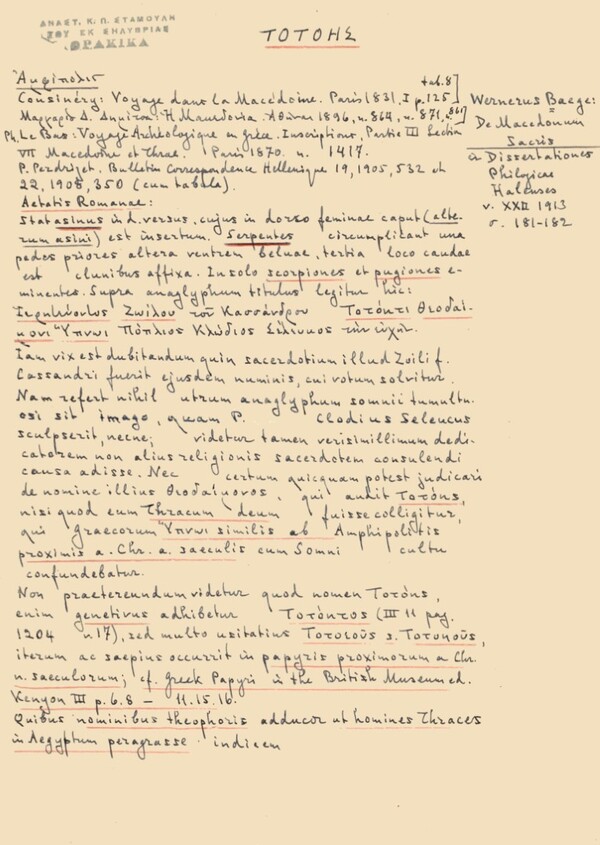 ΑΝΑΣΤ. Κ. Π. ΣΤΑΜΟΥΛΗ
ΤΟΥ ΕΚ ΣΗΛΥΒΡΙΑΣ
ΘΡΑΚΙΚΑ
ΤΟΤΟΗΣ
Ἀμφίπολις
tab. 8
Cousinéry: Voyage dans la Macédoine. Paris 1831, I p. 125
Μαργαρίτ Δ. Δήμιτσα: Ἡ Μακεδονία. Ἀθῆναι 1896, n. 864, n. 871, 861
Ph. Le Bas: Voyage Archéologique en Grèce. Inscriptions, Partie III Sectia
VII Macedoine et Thrae. Paris 1870. n. 1417.
P. Perdrizet. Bulletin Correspondence Hellenique 19, 1905, 532 et
22, 1908, 350 (cum tabula).
Wernerus Baege:
De Macedonum
Sacris
in Dissertationes
Philogicae
Halenses
v. XXII 1913
σ. 181-182
Aetatis Romanae:
Stat asinus in d. versus, cujus in dorso feminae caput (alte-
rum asini) est insertum. Serpentes circumplicant una
pedes priores altera ventrem beluae, tertia loco caudae
est clunibus affixa. In solo scorpiones et pugiones e-
minentes. Supra anaglyphum titulus legitur hic:
Ἱερητεύοντος Ζωίλου τοῦ Κασσάνδρου Τοτόητι Θεοδαί-
μονι Ὕπνωι Πόπλιος Κλώδιος Σέλευκος τὴν εὐχήν.
Iam vix est dubitandum quin sacerdotium illud Zoili f.
Cassandri fuerit ejusdem numinis, cui votum solvitur.
Nam refert nihil utrum anaglyphum somnii tumultu-
osi sit imago, quam P. Clodius Seleucus
sculpserit, necne; videtur tamen verisimillimum dedi-
catorem non alius religionis sacerdotem consulendi
causa adisse. Nec certum quicquam potest judicari
de nomine illius Θεοδαίμονος, qui audit Τοτόης,
nisi quod eum Thracum deum fuisse colligitur,
qui Graecorum Ὕπνωι similis ab Amphipolitis
proximis a. Chr. a. saeculis cum Somni cultu
confundebatur.
Non praetereundum videtur quod nomen Τοτόης,
enim genetivus adhibetur Τοτόητος (III 11 pag.
1204 n. 17), sed multo usitatius Τοτοιοῦς s. Τοτοηοῦς,
iterum ac saepius occurrit in papyris proximorum a Chr.
n. saeculorum; cf. Greek Papyri in the British Museum ed.
Kenyon III p. 6. 8 – 11. 15. 16.
Quibus nominibus theophoris adducor ut homines Thraces
in Aegyptum peragrasse indicem